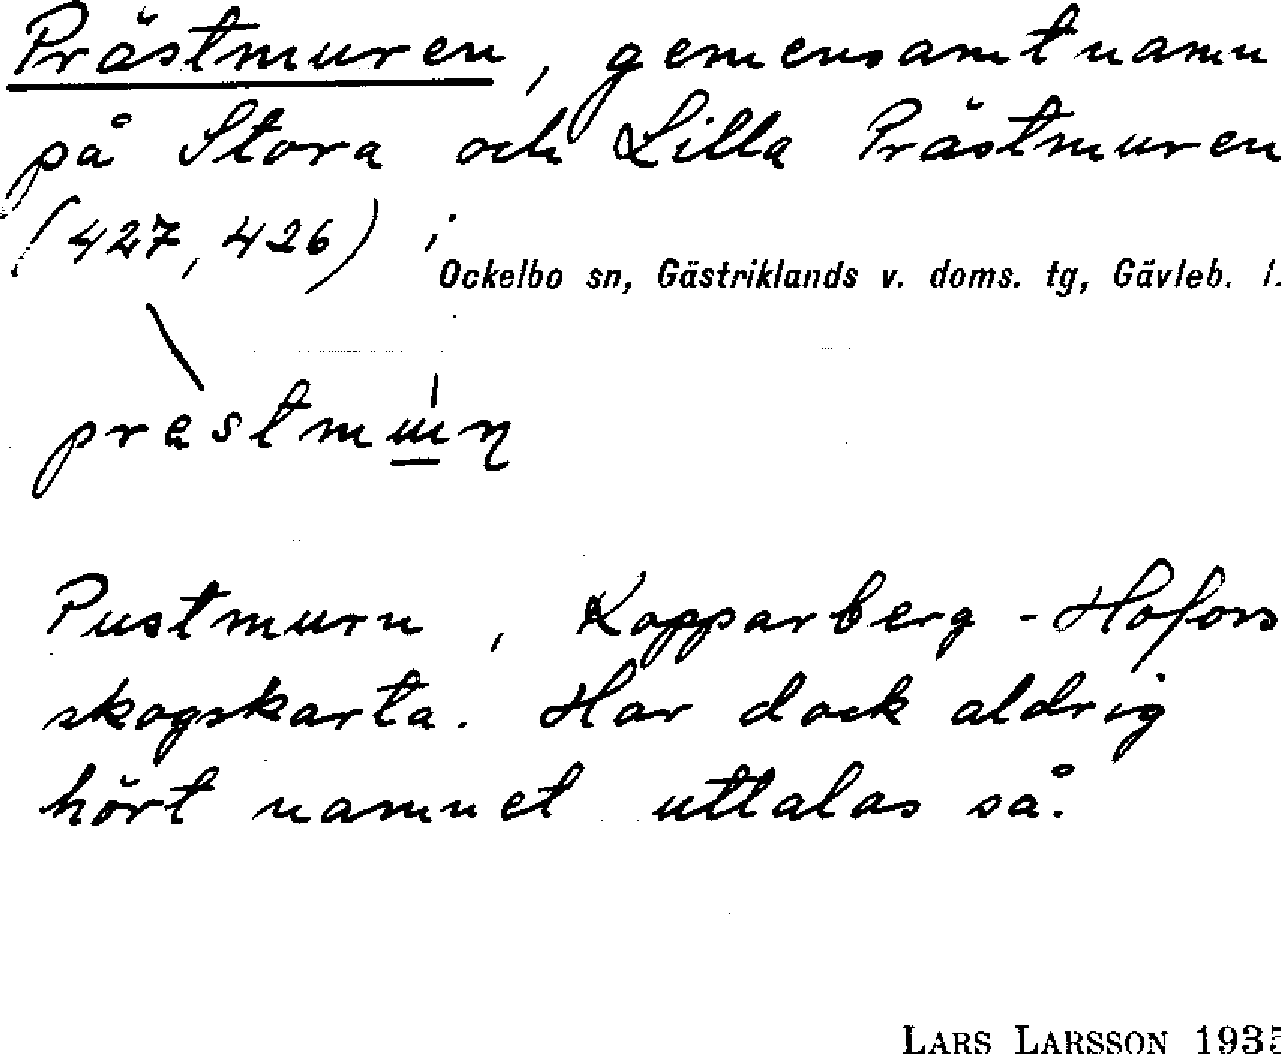 Prästmuren, gemensamt namn
på Stora och Lilla Prästmuren
(427, 426) i
Ockelbo sn, Gästriklands v. doms. tg, Gävleb. l.
Pustmurn, Kopparberg-Hofors
skogskarta. Har dock aldrig
hört namnet uttalas så.
LARS LARSSON 1935